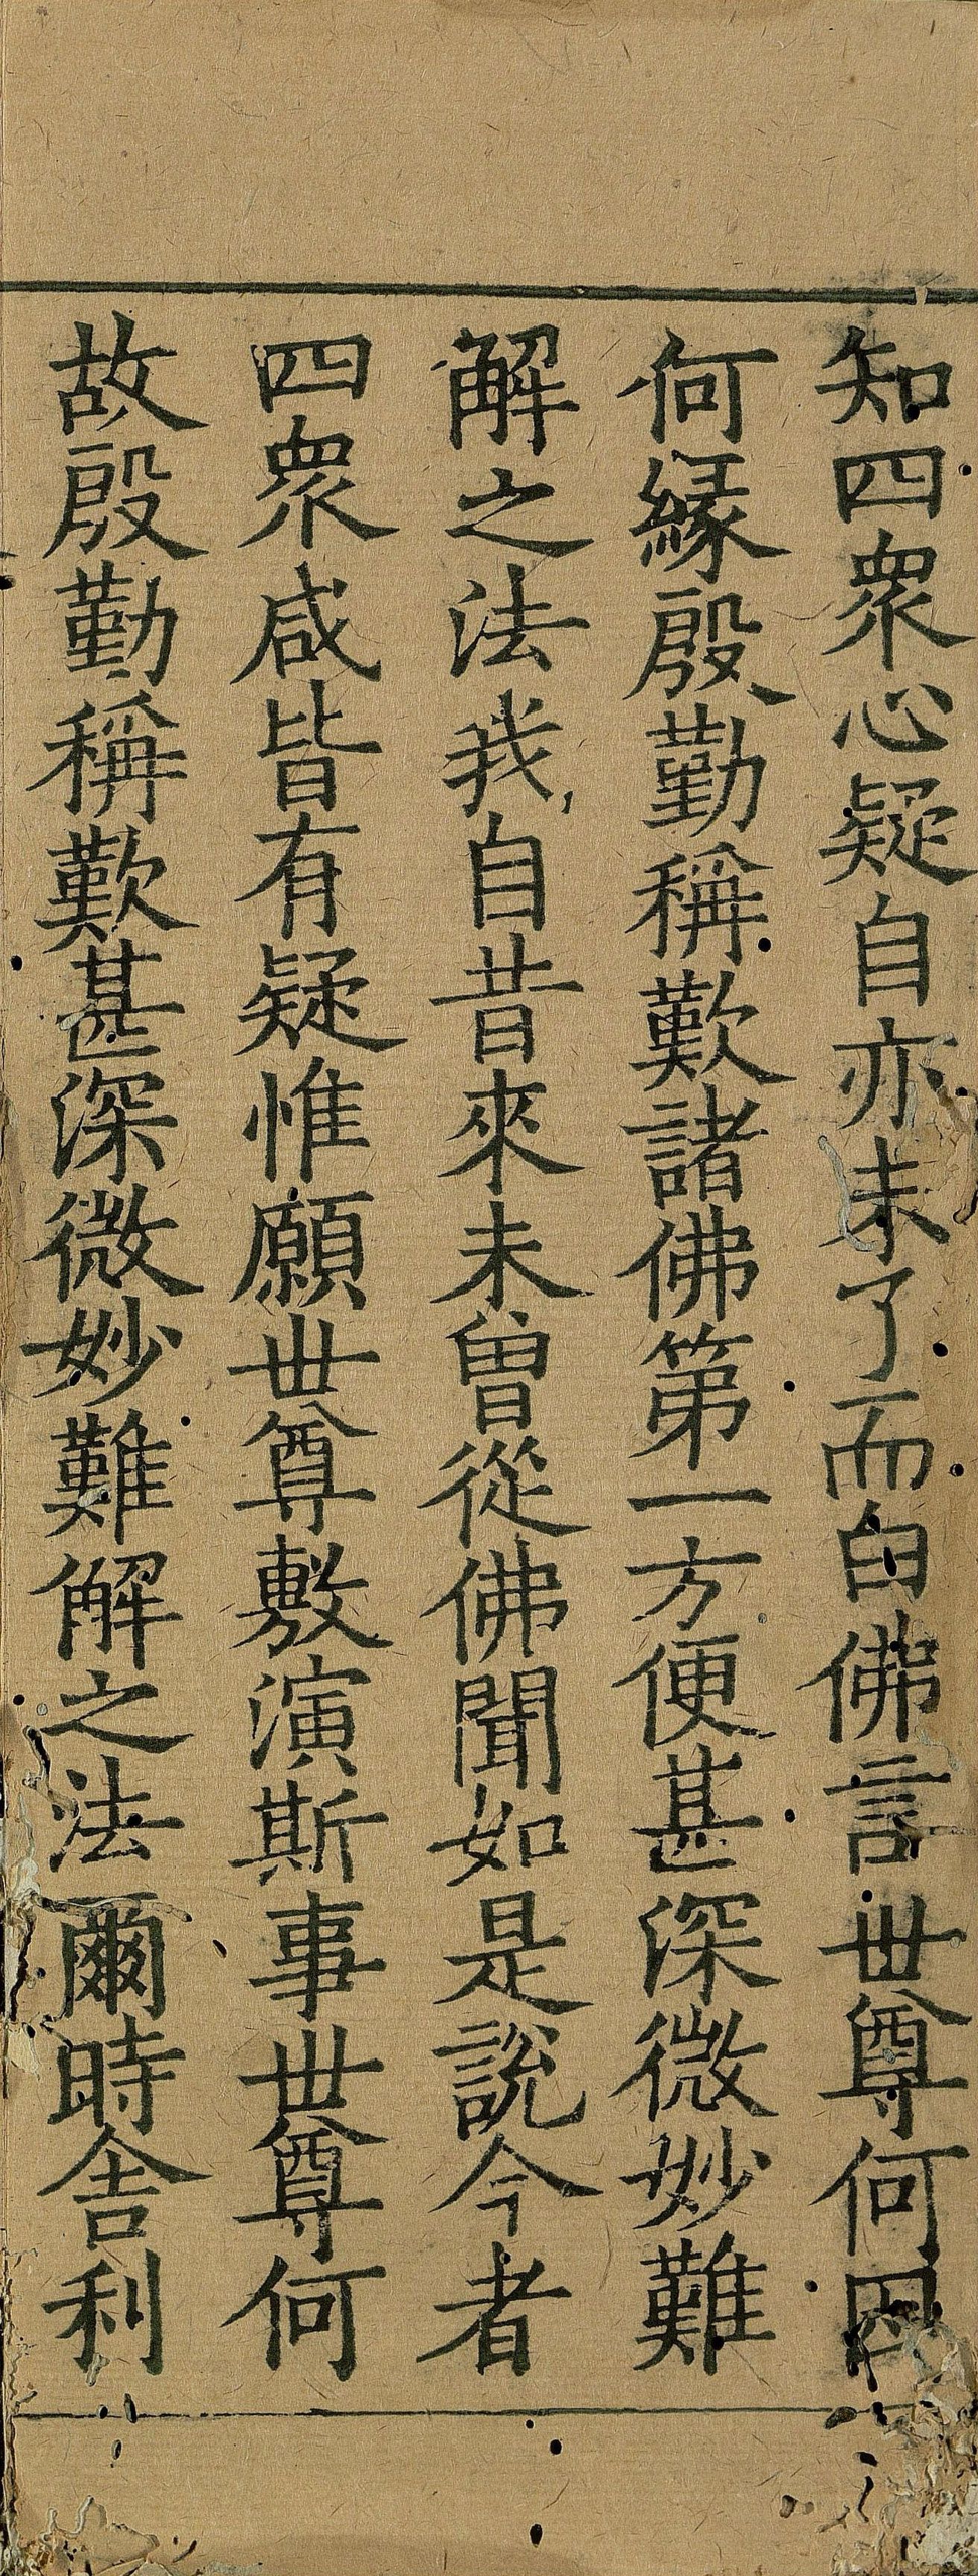 知四衆心疑自亦未了而白佛言世尊何因
何緣殷勤稱歎諸佛第一方便甚深微妙難
解之法我自昔來未曾從佛聞如是說今者
四衆咸皆有疑惟願世尊敷演斯事世尊何
故殷勤稱歎甚深微妙難解之法爾時舍利